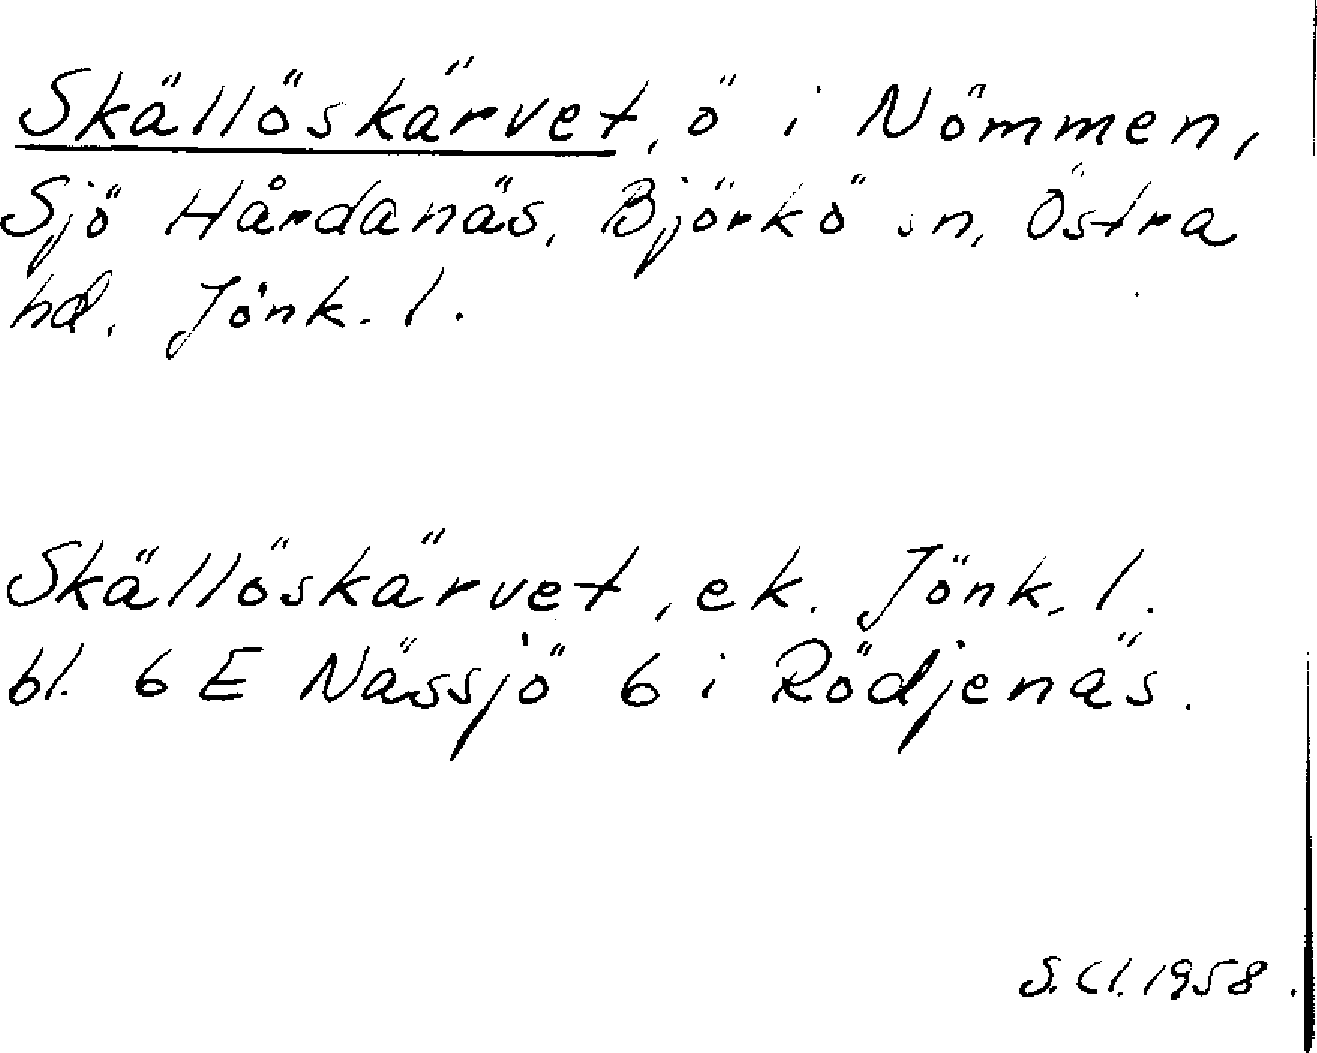 Skällöskärvet, ö i Nömmen,
Sjö Hårdanäs, Björkö sn, Östra
hd. Jönk. l.
Skällöskärvet, ek. Jönk. l.
bl. 6 E Nässjö 6 i Rödjenäs.
S. Cl. 1958.